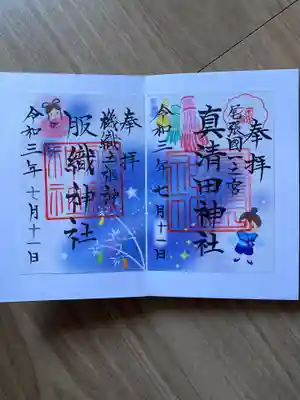 奉拝
尾張國一之宮
真清田神社
令和三年七月十一日
奉拝
機織
服織神社
令和三年七月十一日